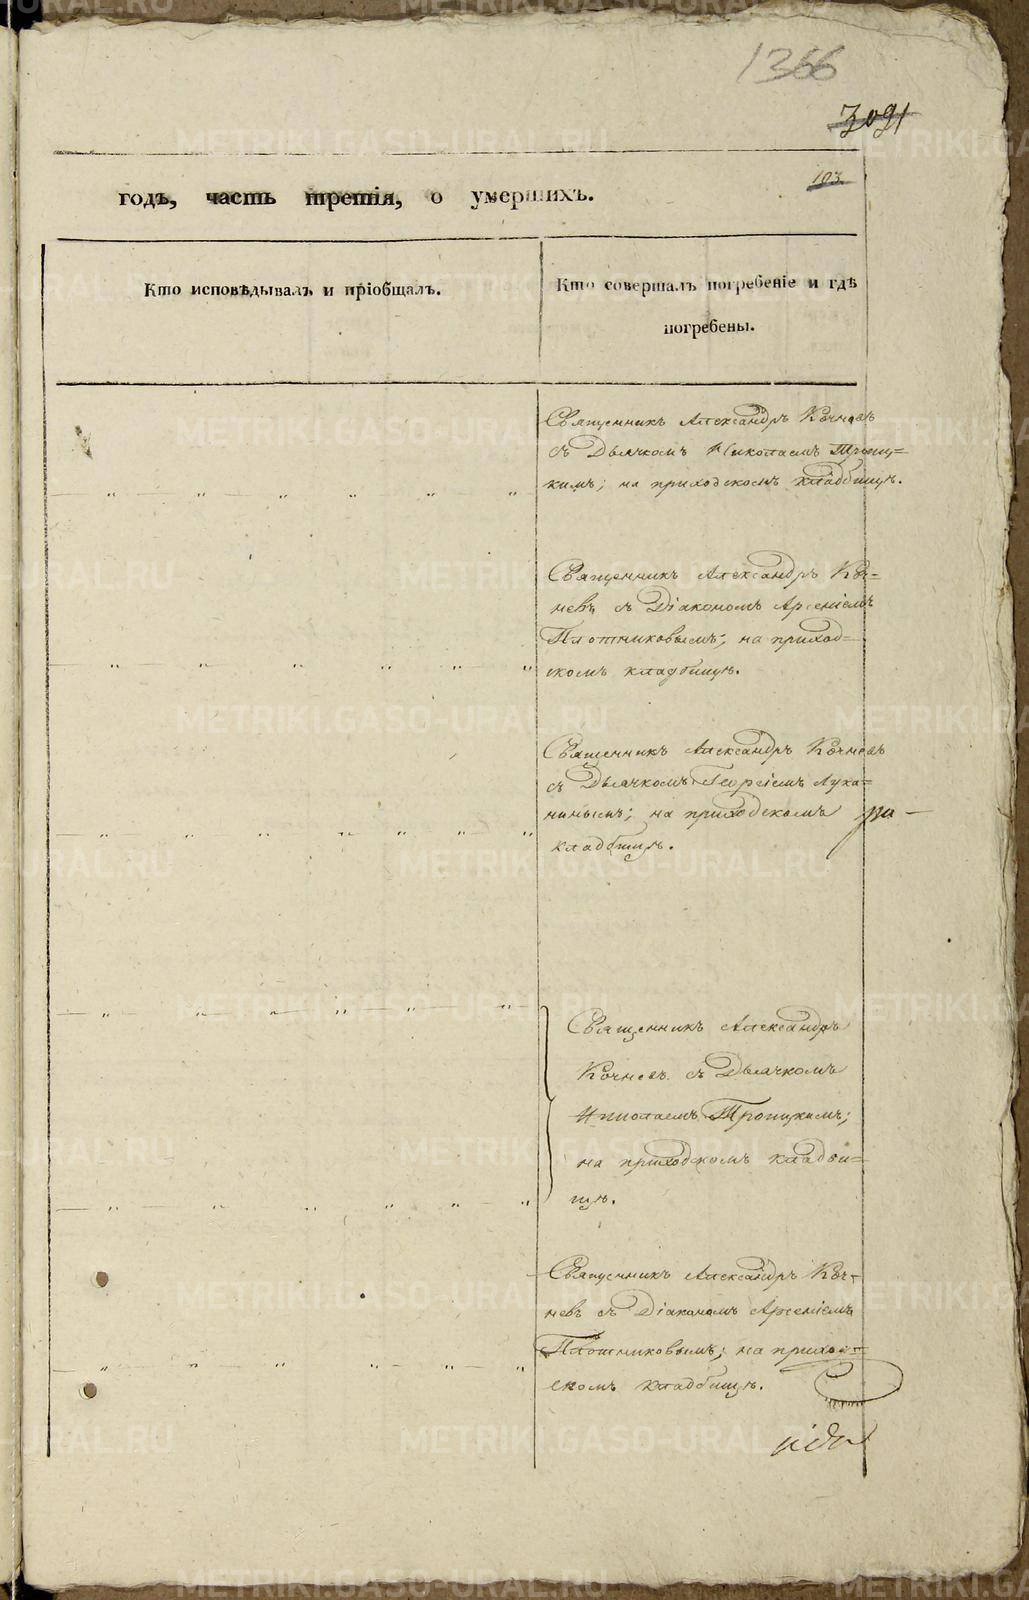 1366
3091
103.
годъ, часть третія, о умершихъ.
Кто исповѣдывалъ и пріобщалъ.
Кто совершалъ погребеніе и гдѣ
погребены.
Священникъ Александръ Кочневъ
съ Дьячкомъ Николаемъ Троиц=
кимъ; на приходскомъ кладбищѣ.
Священникъ Александръ Коч=
невъ съ Діакономъ Арсеніемъ
Плотниковымъ; на приход=
скомъ кладбищѣ.
Священникъ Александръ Кочневъ
съ Дьячкомъ Георгіемъ Лука=
нинымъ; на приходскомъ
кладбищѣ.
Священникъ Александръ
Кочневъ съ Дьячкомъ
Николаемъ Троицкимъ;
на приходскомъ кладби=
щѣ.
Священникъ Александръ Коч=
невъ съ Діакономъ Арсеніемъ
Плотниковымъ; на приход=
скомъ кладбищѣ.
METRIKI.GASO-URAL.RU